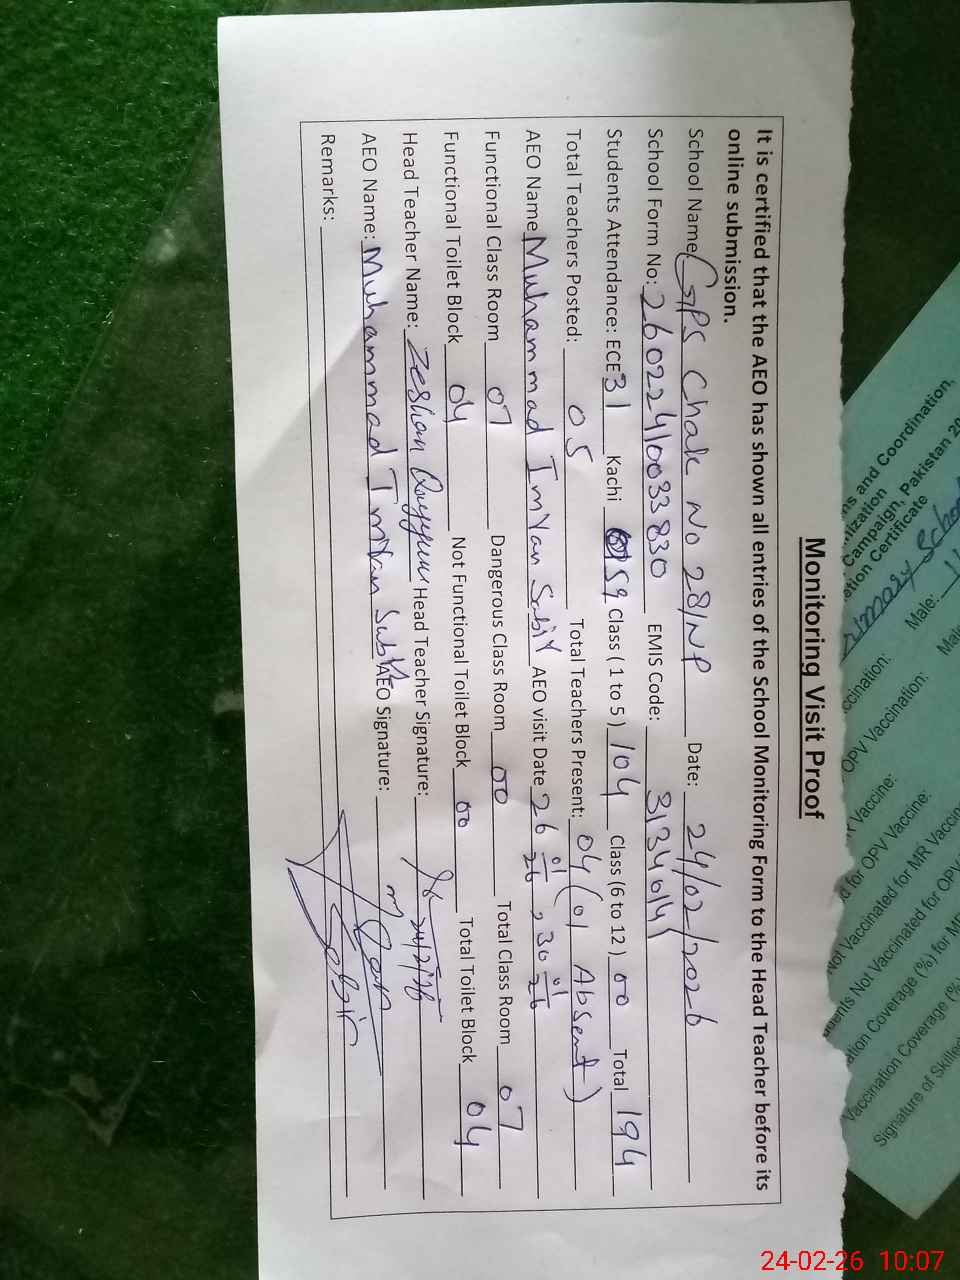 Monitoring Visit Proof
It is certified that the AEO has shown all entries of the School Monitoring Form to the Head Teacher before its
online submission.
School Name GPS Chak No 28/NP Date: 24/02/2026
School Form No: 26022410033830 EMIS Code: 31340141
Students Attendance: ECE 31 Kachi 59 Class ( 1 to 5 ) 104 Class (6 to 12 ) 00 Total 194
Total Teachers Posted: 05 Total Teachers Present: 04 (01 Absent)
AEO Name Muhammad Imran Sabir AEO visit Date 26 01/26, 30 01/26
Functional Class Room 07 Dangerous Class Room 00 Total Class Room 07
Functional Toilet Block 04 Not Functional Toilet Block 00 Total Toilet Block 04
Head Teacher Name: Zeshan Qayyum Head Teacher Signature: 24/2/26
AEO Name: Muhammad Imran Sabir AEO Signature: Sabir
Remarks:
ns and Coordination,
Campaign, Pakistan 20
etion Certificate
Male:
OPV Vaccination:
Vaccine:
d for OPV Vaccine:
Not Vaccinated for MR Vaccin
ents Not Vaccinated for OPV
ation Coverage (%) for M
Vaccination Coverage (%)
Signature of Skilled
24-02-26 10:07